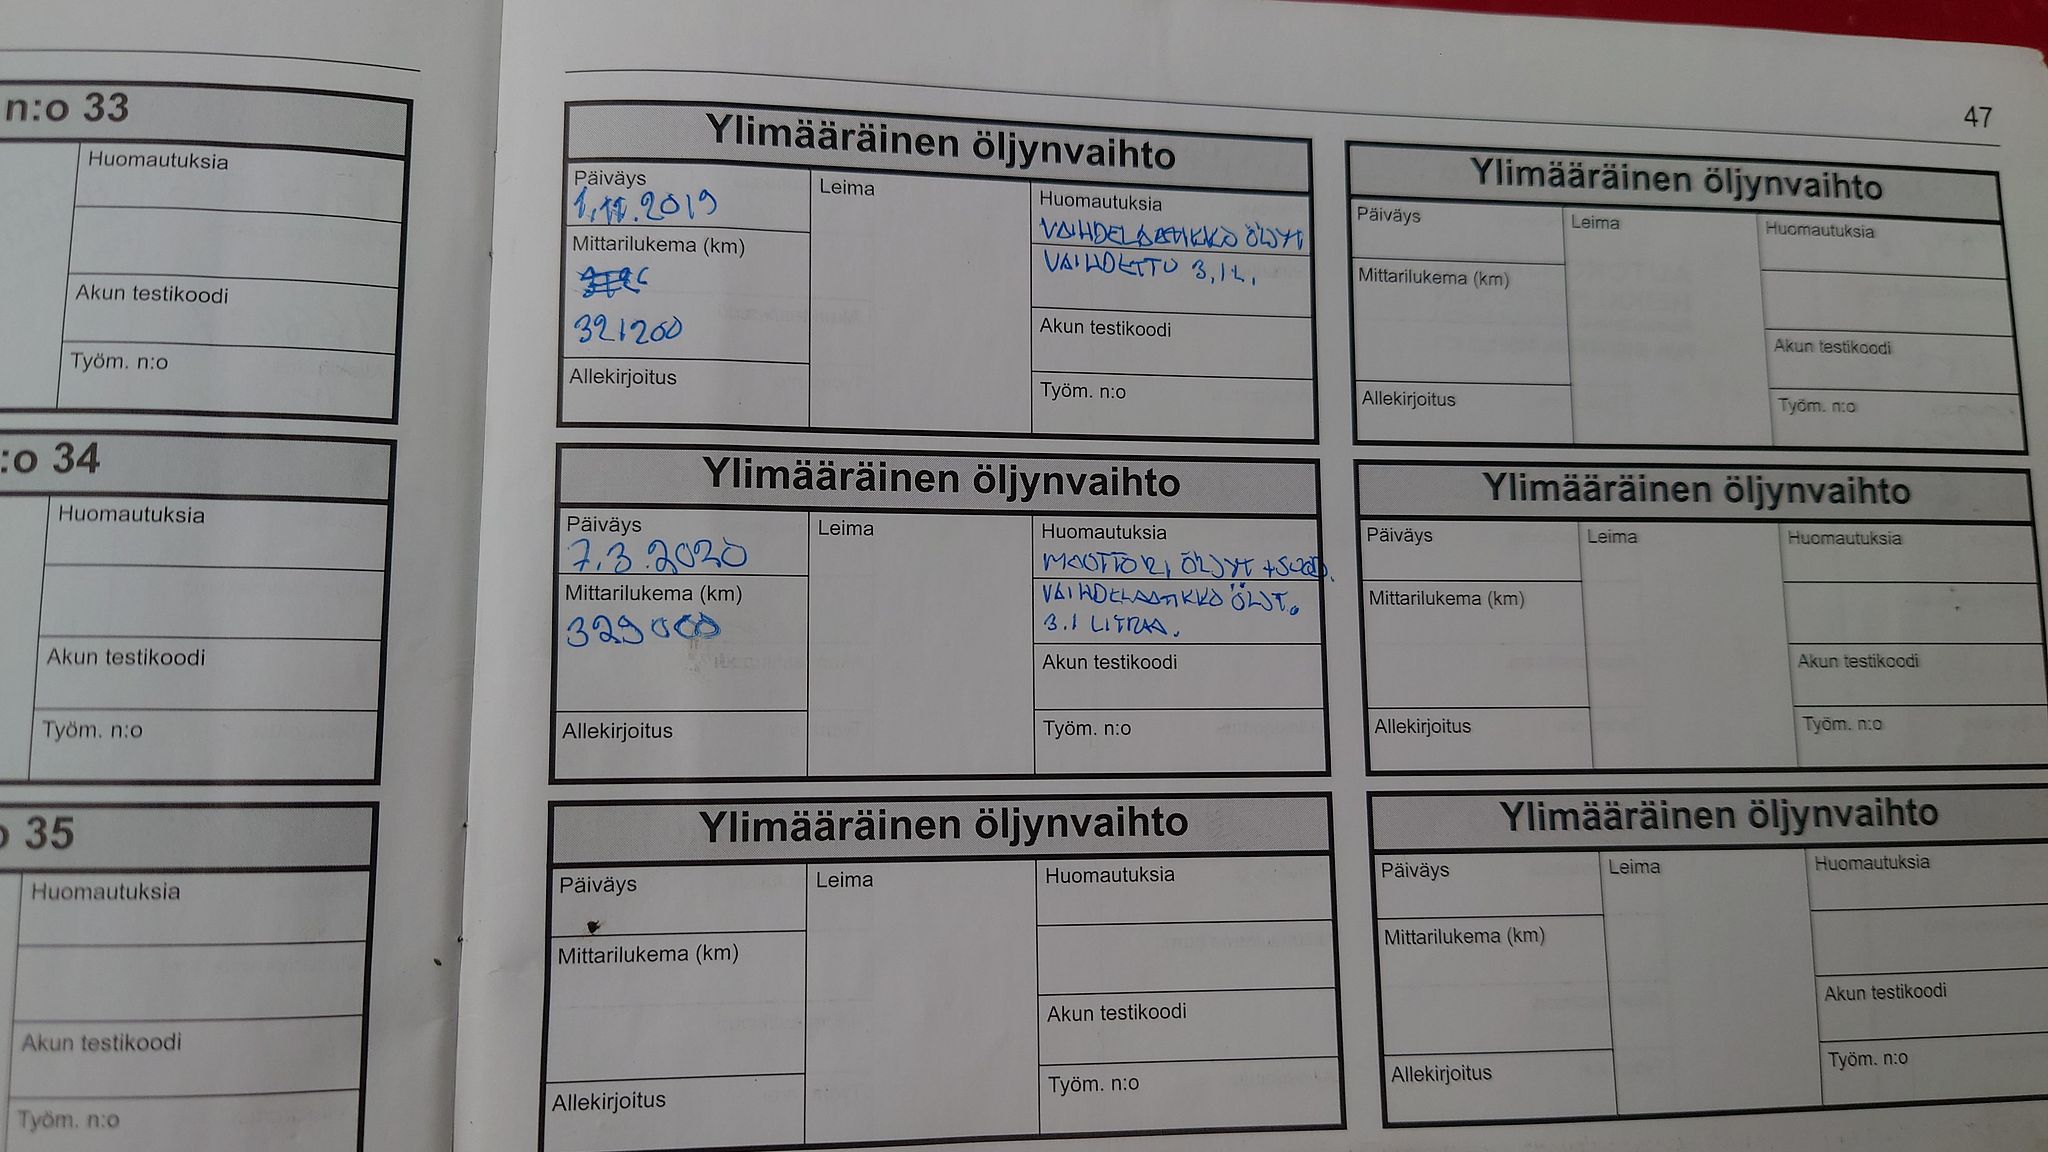 n:o 33
Huomautuksia
Akun testikoodi
Työm. n:o
:o 34
Huomautuksia
Akun testikoodi
Työm. n:o
o 35
Huomautuksia
Akun testikoodi
Työm. n:o
47
Ylimääräinen öljynvaihto
Päiväys
1.11.2019
Mittarilukema (km)
321200
Allekirjoitus
Leima
Huomautuksia
VAIHDELAATIKKO ÖLJYT
VAIHDETTU 3,1L.
Akun testikoodi
Työm. n:o
Ylimääräinen öljynvaihto
Päiväys
Mittarilukema (km)
Allekirjoitus
Leima
Huomautuksia
Akun testikoodi
Työm. n:o
Ylimääräinen öljynvaihto
Päiväys
7.3.2020
Mittarilukema (km)
329000
Allekirjoitus
Leima
Huomautuksia
MOOTTORI ÖLJYT +SUOD.
VAIHDELAATIKKO ÖLJT.
3.1 LITRAA.
Akun testikoodi
Työm. n:o
Ylimääräinen öljynvaihto
Päiväys
Mittarilukema (km)
Allekirjoitus
Leima
Huomautuksia
Akun testikoodi
Työm. n:o
Ylimääräinen öljynvaihto
Päiväys
Mittarilukema (km)
Allekirjoitus
Leima
Huomautuksia
Akun testikoodi
Työm. n:o
Ylimääräinen öljynvaihto
Päiväys
Mittarilukema (km)
Allekirjoitus
Leima
Huomautuksia
Akun testikoodi
Työm. n:o